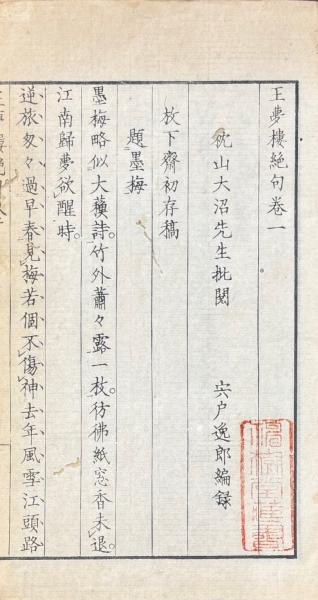 王夢樓絶句卷一
枕山大沼先生批閲　宍戸逸郎編録
枚下齋初存稿
題墨梅
墨梅略似大蘓詩。竹外蕭々露一枝。彷彿紙窓香未退。
江南歸夢欲醒時。
逆旅匆々過早春見梅若個不傷神去年風雪江頭路